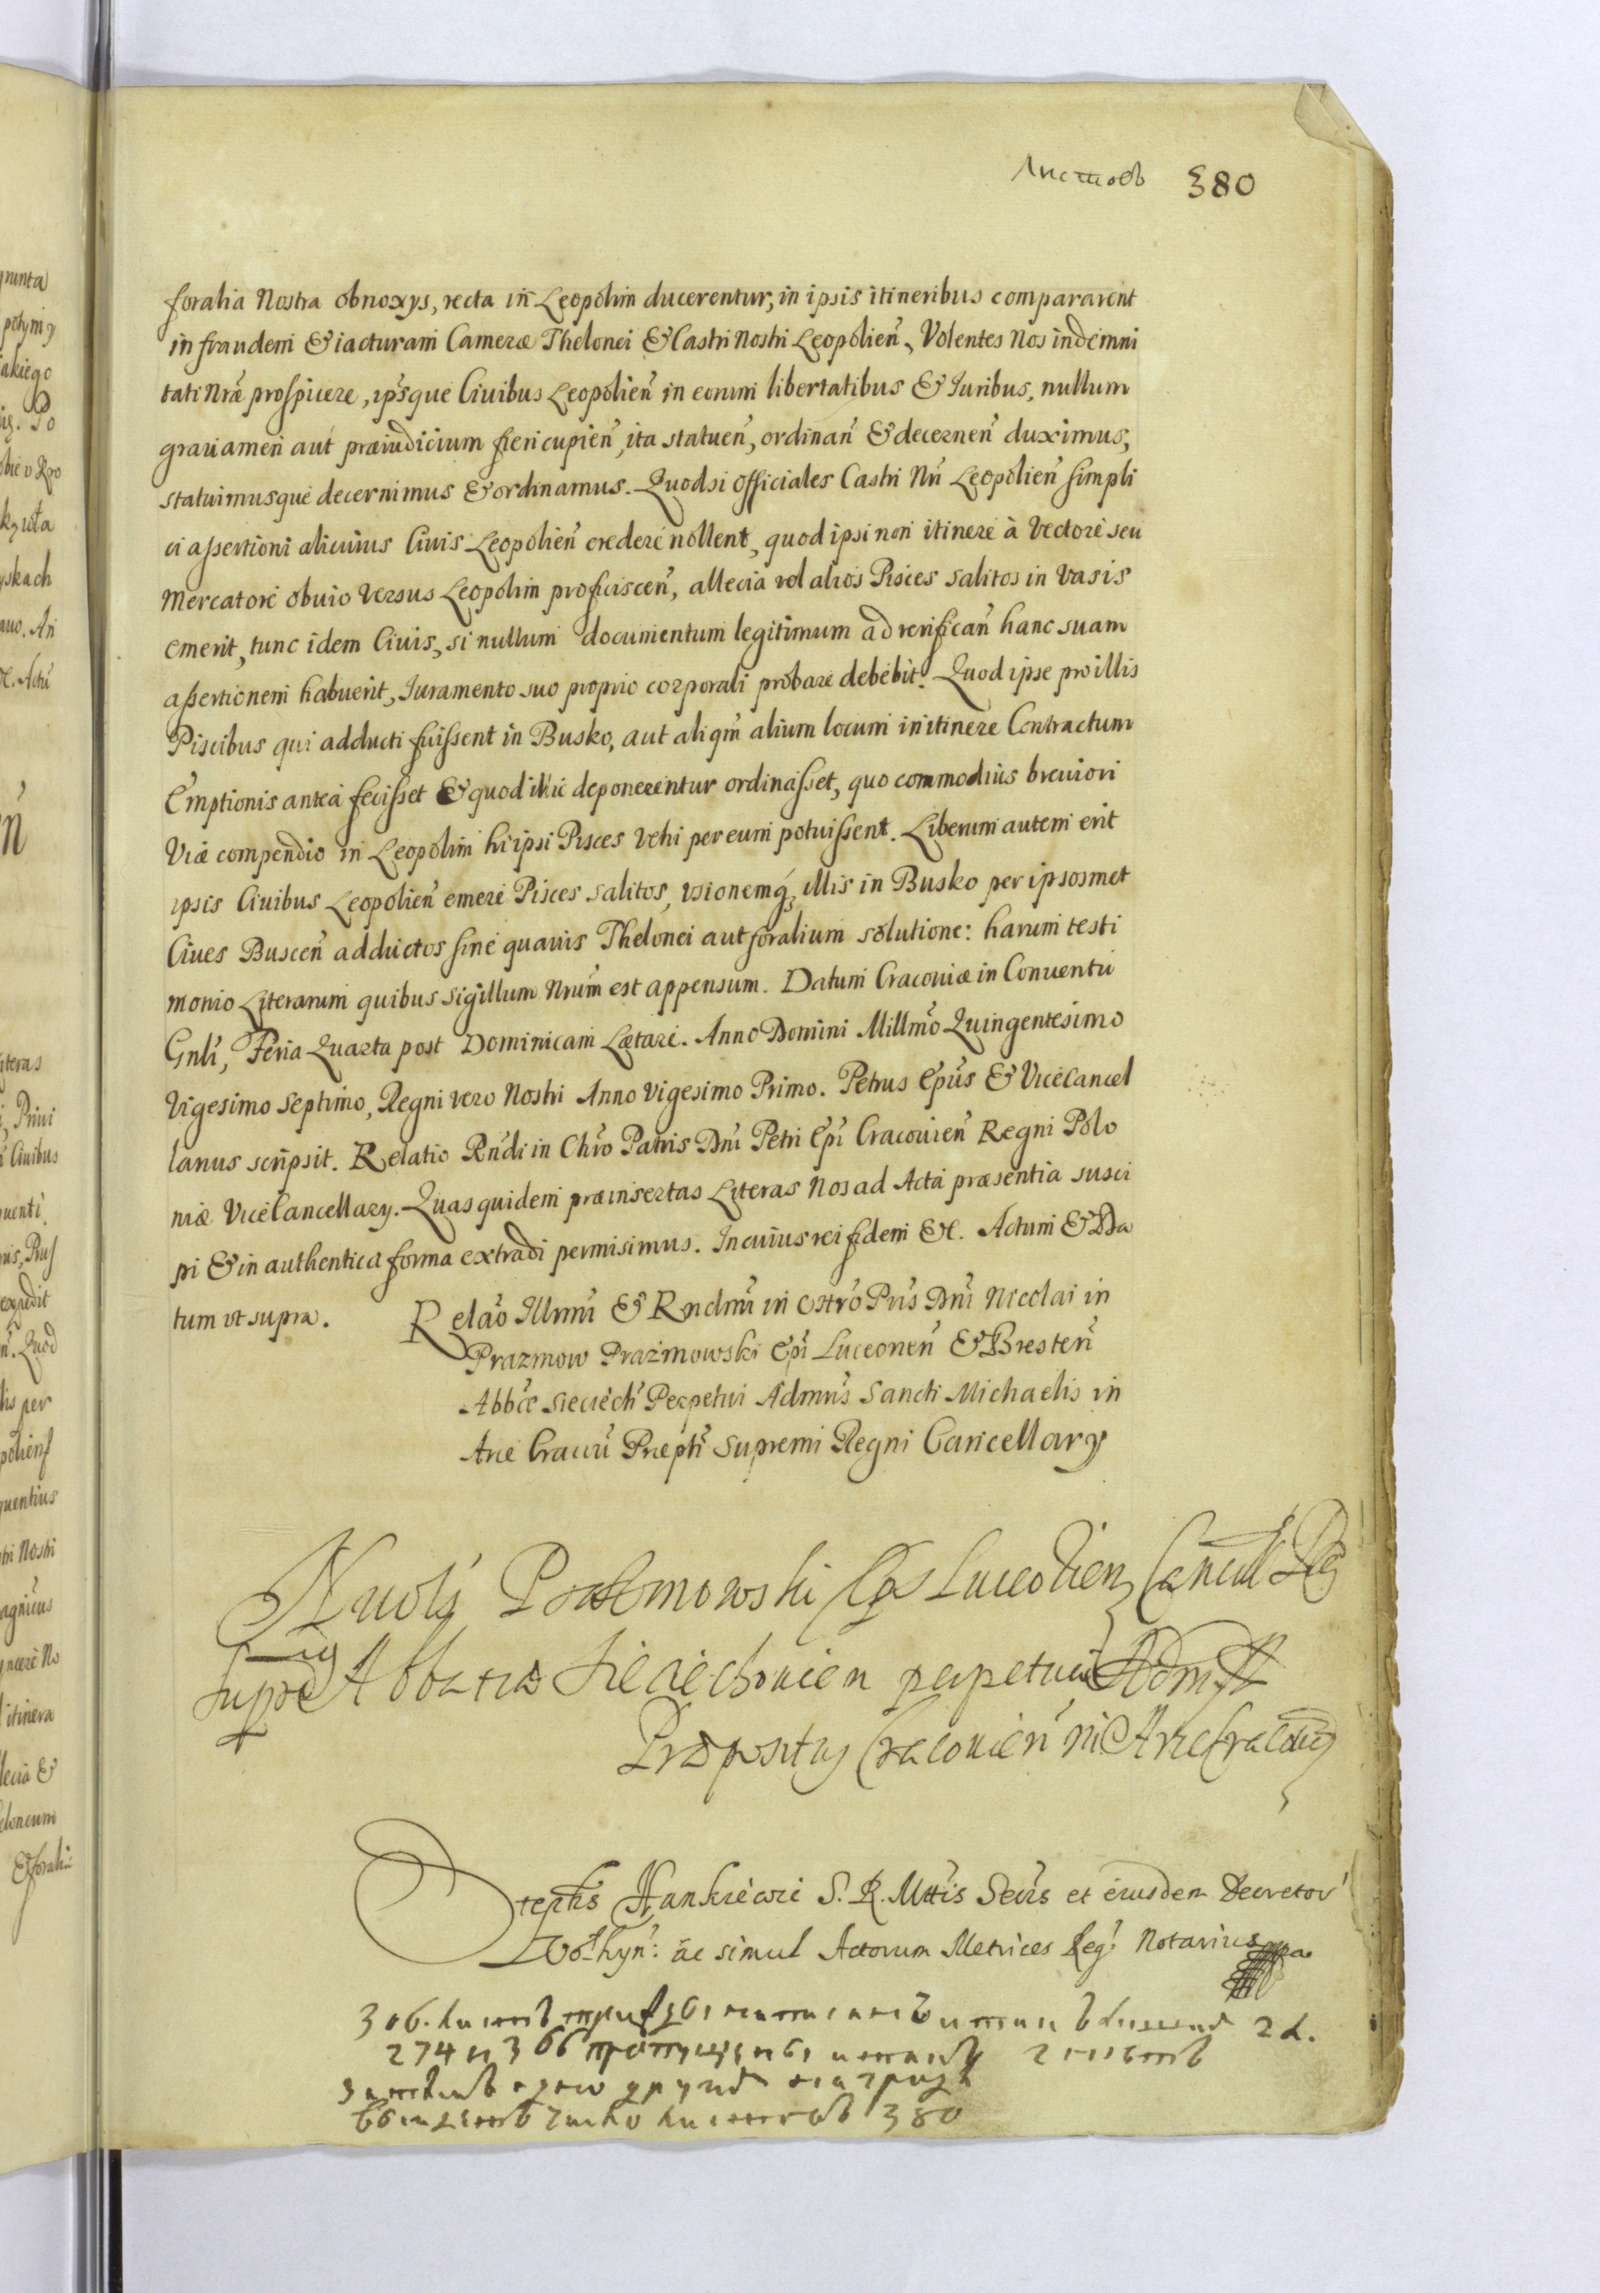 Листовъ 380
foralia Nostra obnoxys, recta in Leopolim ducerentur, in ipsis itineribus compararent
in fraudem & iacturam Cameræ Thelonei & Castri Nostri Leopolień, Volentes Nos indemni
tati Nræ prospicere, ipsque Ciuibus Leopolień in eorum libertatibus & Iuribus, nullum
grauamen aut præiudicium fieri cupień, ita statueń, ordinań & decerneń duximus,
statuimusque decernimus & ordinamus. Quodsi officiales Castri Nri Leopolień simpli
ci assertioni alicuius Ciuis Leopolień credere nollent, quod ipsi non itinere à Vectore seu
Mercatore obuio versus Leopolim proficisceń, allecia vel alios Pisces salitos in Vasis
emerit, tunc idem Ciuis, si nullum documentum legitimum ad verificań hanc suam
assertionem habuerit, Iuramento suo proprio corporali probare debebit. Quod ipse pro illis
Piscibus qui adducti fuissent in Busko, aut aliqm alium locum in itinere Contractum
Emptionis antea fecisset & quod illic deponerentur ordinasset, quo commodius breuiori
Viæ compendio in Leopolim hi ipsi Pisces vehi per eum potuissent. Liberum autem erit
ipsis Ciuibus Leopolień emere Pisces salitos, vsionemq, illis in Busko per ipsosmet
Ciues Busceń adductos sine quauis Thelonei aut foralium solutione: harum testi
monio Literarum quibus sigillum Nrum est appensum. Datum Cracouiæ in Conuentu
Gnli, Feria Quarta post Dominicam Lætare. Anno Domini Millmo Quingentesimo
Vigesimo septimo, Regni vero Nostri Anno vigesimo Primo. Petrus Epus & Vicecancel
larius scripsit. Relatio Rndi in Chro Patris Dni Petri Epi Cracouień Regni Polo
niæ Vicecancellary. Quas quidem præinsertas Literas Nos ad Acta præsentia susci
pi & in authentica forma extradi permisimus. In cuius rei fidem &c. Actum & Da
tum vt supra. Relao Illmi & Rndmi in Chro Pris Dni Nicolai in
Prazmow Prazmowski Epi Luceoneń & Bresteń
Abbæ Sieciech Perpetui Admris Sancti Michaelis in
Arce Cracou Præpti supremi Regni Cancellary
Prazmowski Eps Luceorien Cancell Reg
Abbatia Sieciechouien perpetuus Adm
Præpositus Cracouień in Arce
Stephs Hankiewic S. R. Mttis Secrs et eiusdem Decretor
Wołhyn: ac simul Actorum Metrices Reg: Notarius
274 и 306
380